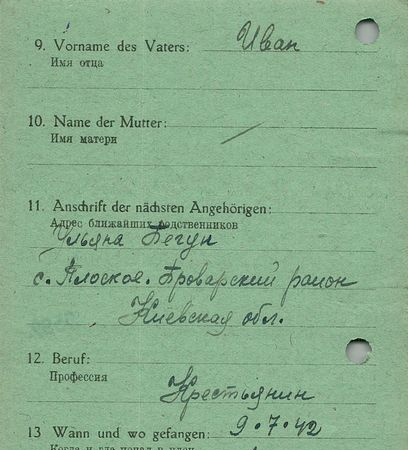 9. Vorname des Vaters: Иван
Имя отца
10. Name der Mutter: /
Имя матери
11. Anschrift der nächsten Angehörigen:
Адрес ближайших родственников
Ульяна Бегун
с. Плоское. Броварский район
Киевская обл.
12. Beruf:
Профессия
Крестьянин
13 Wann und wo gefangen: 9.7.42
Когда и где попал в плен